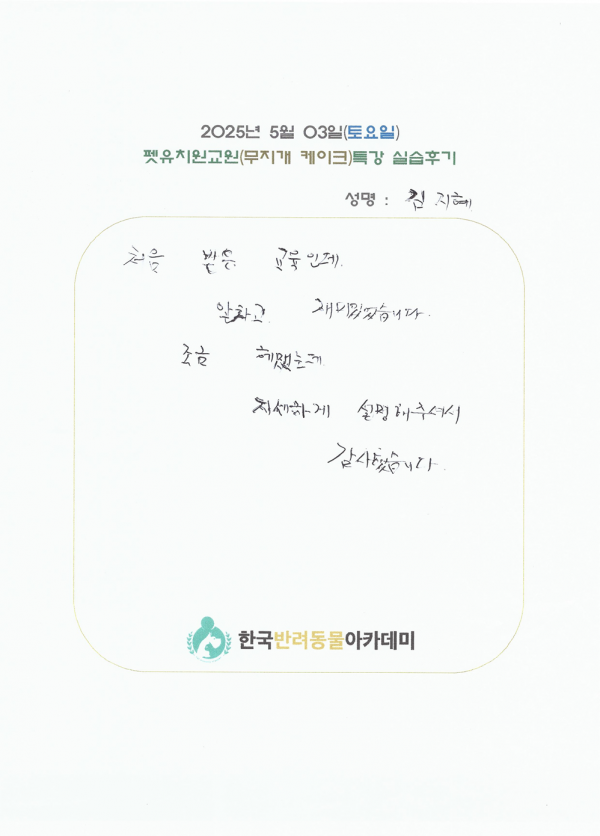 2025년 5월 03일(토요일)
펫유치원교원(무지개 케이크)특강 실습후기
성명 : 김지혜
처음 받은 교육인데.
알차고 재미있었습니다.
조금 헤맸는데
자세하게 설명해주셔서
감사했습니다.
한국반려동물아카데미